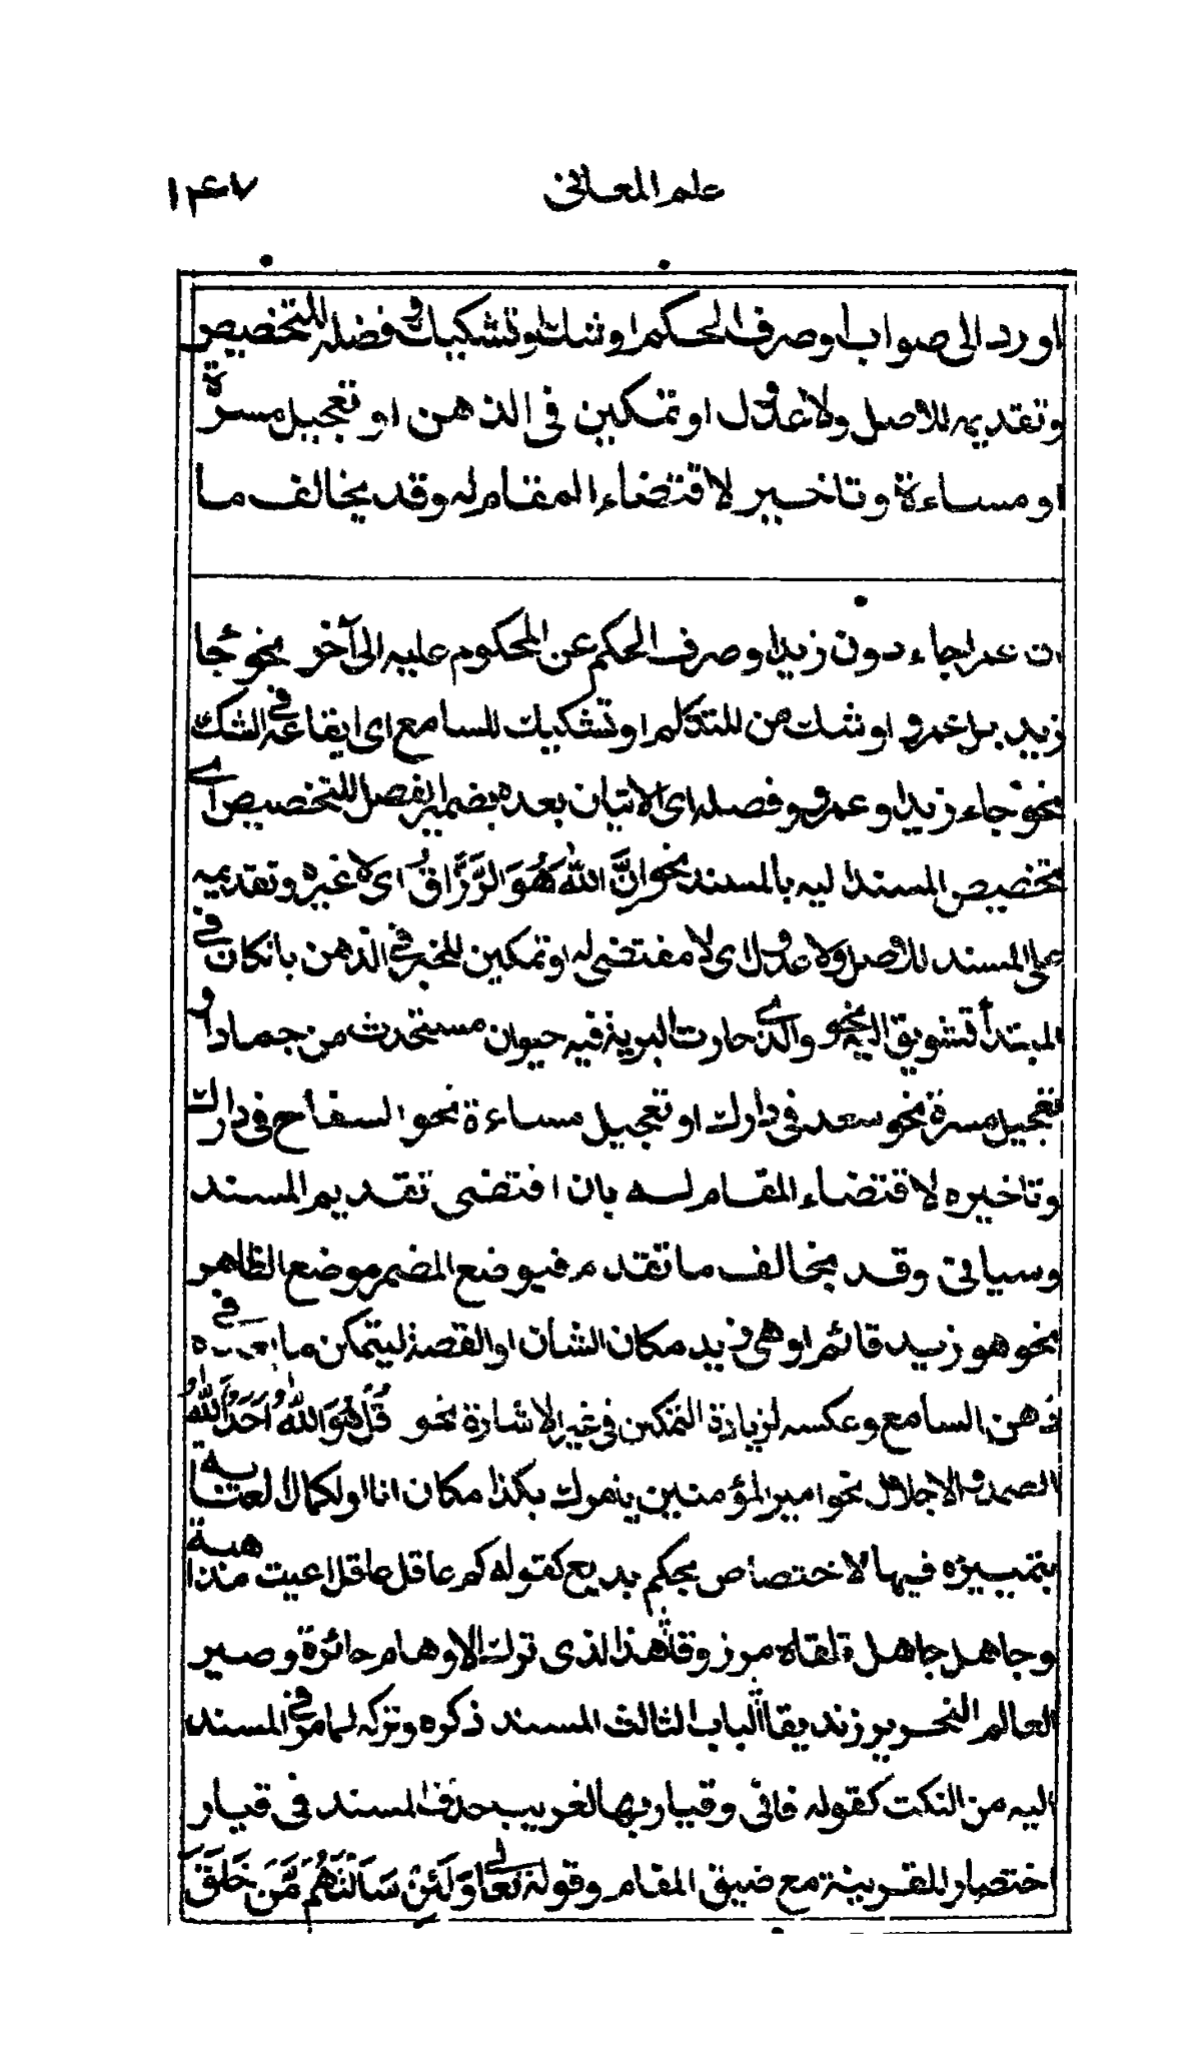 علم المعانی ۱۴۷
او رد الی صواب او صرف الحکم او شک او تشکیک و فضله للتخصیص
وتقدیمه للاصل ولا عدول او تمکین فی الذهن او تعجیل مسرة
او مساءة وتاخیر لاقتضاء المقام له وقد یخالف ما
ان عمرا جاء دون زید او صرف الحکم عن المحکوم علیه الی آخر نحو جا
زید بل عمرو او شک من المتکلم او تشکیک للسامع ای ایقاعه فی الشک
نحو جاء زید او عمرو وفصله ای الاتیان بعده بضمیر الفصل للتخصیص ای
تخصیص المسند الیه بالمسند نحو اِنَّ اللّٰهَ هُوَ الرَّزَّاقُ ای لا غیره وتقدیمه
علی المسند للاصل ولا عدول ای لا مقتضی له او تمکین للخبر فی الذهن بان کان فی
المبتدأ تشویق الیه نحو والذی حارت البریة فیه حیوان مستحدث من جماد او
تعجیل مسرة نحو سعد فی دارك او تعجیل مساءة نحو السفاح فی دارك
وتاخیره لاقتضاء المقام له بان اقتضی تقدیم المسند
وسیاتی وقد یخالف ما تقدم فیوضع المضمر موضع الظاهر
نحو هو زید قائم او هی زید مکان الشان او القصة لیتمکن ما فی
ذهن السامع وعکسه لزیادة التمکین فی غیر الاشارة نحو قُلْ هُوَ اللّٰهُ اَحَدٌ اَللّٰهُ
الصمد والاجلال نحو امیر المؤمنین یامرك بکذا مکان انا او لکمال العنایة
بتمییزه فیها لاختصاص بحکم بدیع کقوله کم عاقل عاقل اعیت مذاهبه
وجاهل جاهل تلقاه مرزوقا هذا الذی ترك الاوهام حائرة وصیر
العالم النحریر زندیقا الباب الثالث المسند ذکره وترکه لما مر فی المسند
الیه من النکت کقوله فانی وقیار بها لغریب حذف المسند فی قیار
اختصارا للقرینة مع ضیق المقام وقوله تعالی وَلَئِنْ سَاَلْتَهُمْ مَّنْ خَلَقَ